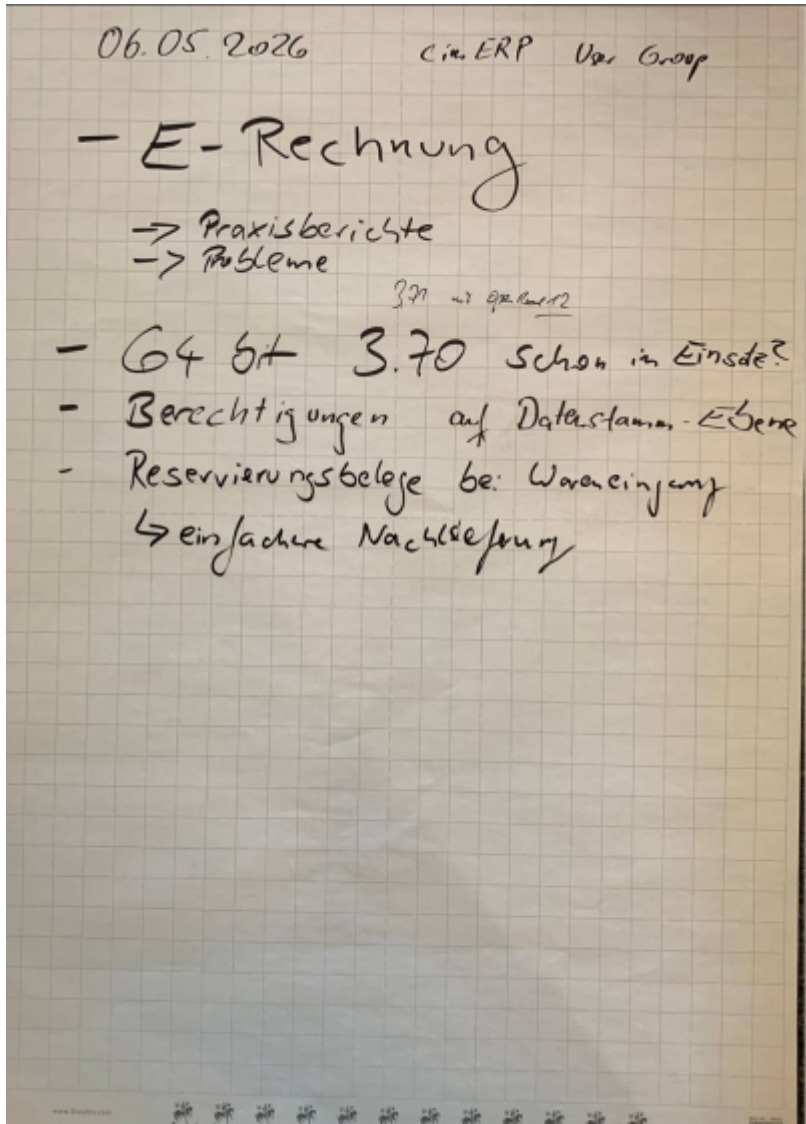 06.05.2026 cim ERP User Group
- E-Rechnung
-> Praxisberichte
-> Probleme
- 64 bit 3.70 schon in Einsatz?
- Berechtigungen auf Datenstamm-Ebene
- Reservierungsbelege bei Wareneingang
↳ einfachere Nachlieferung